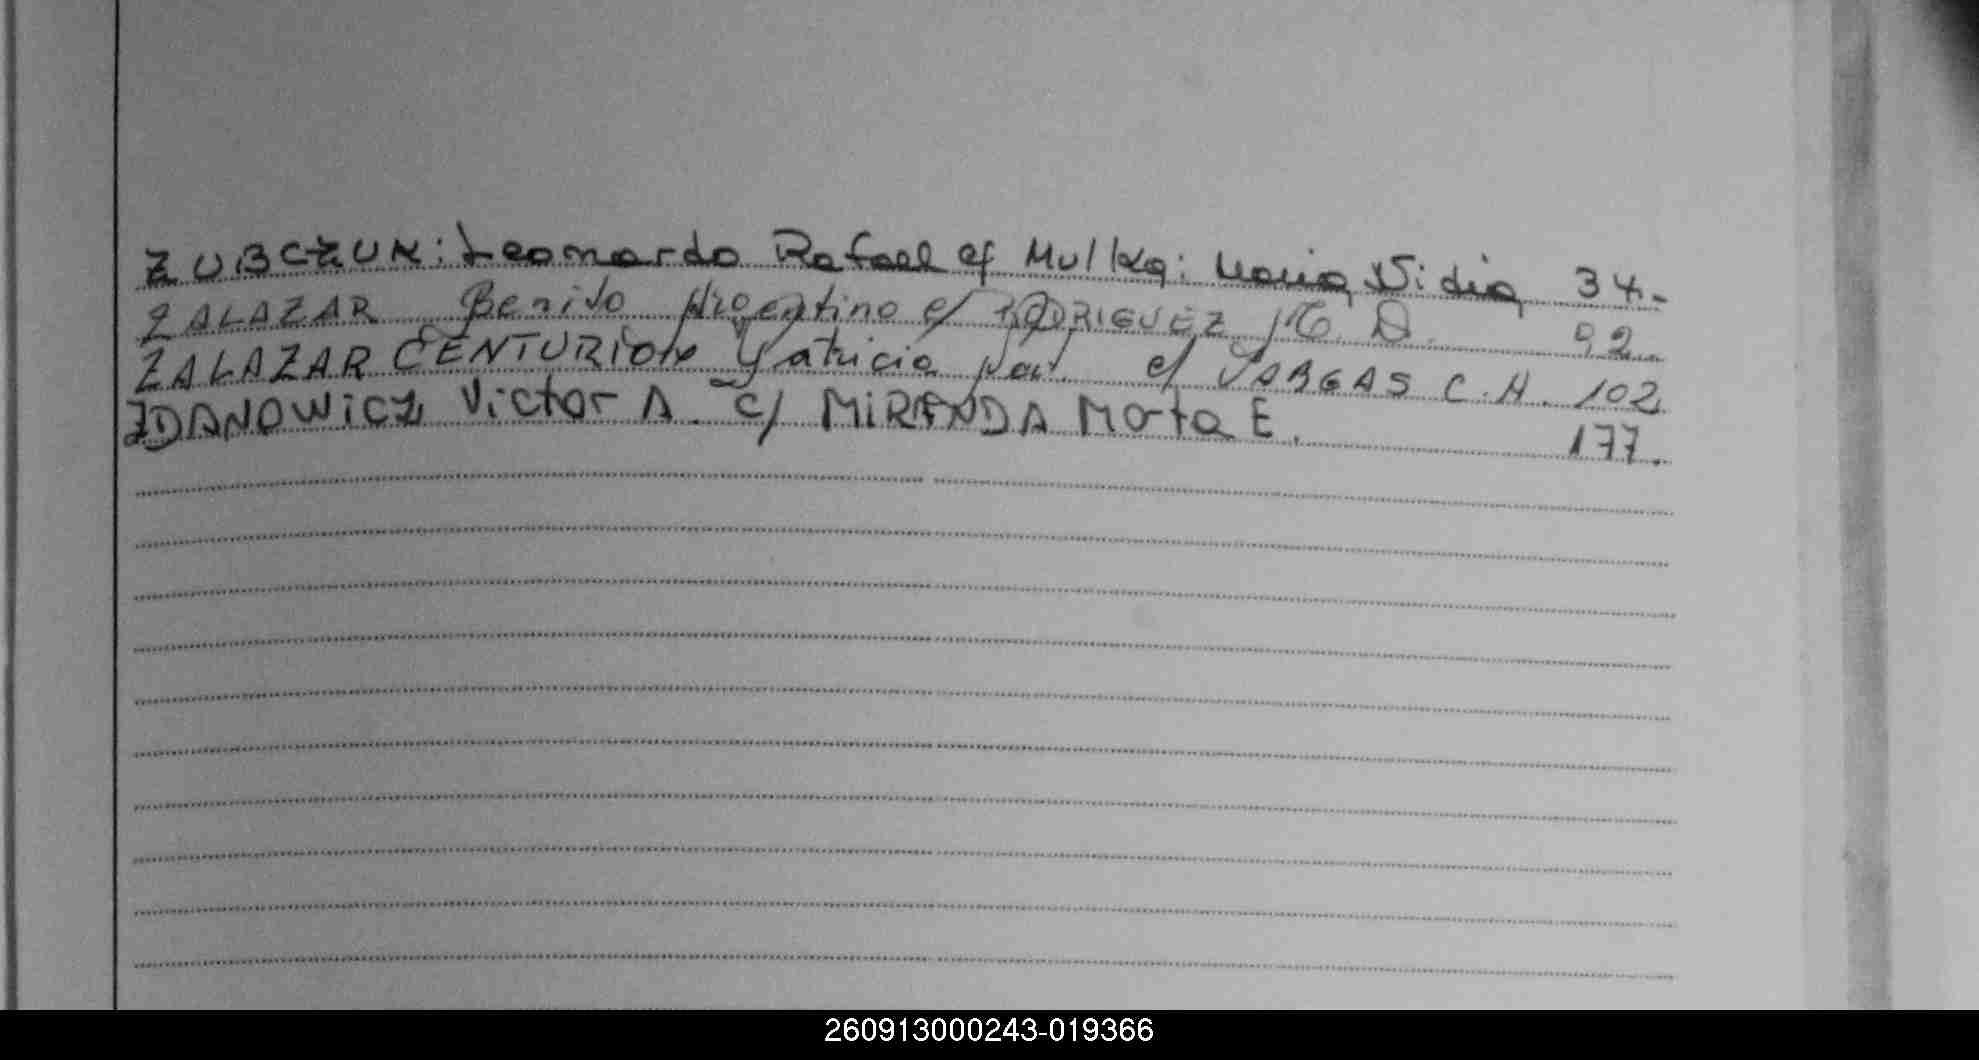 ZUBCZUK: Leonardo Rafael c/ Mulka: Maria Lidia 34.
ZALAZAR Benito Argentino c/ RODRIGUEZ, D. 92.
ZALAZAR CENTURION c/ VARGAS C.H. 102
ZDANOWICZ Victor A. c/ MIRANDA Marta E. 177.
260913000243-019366